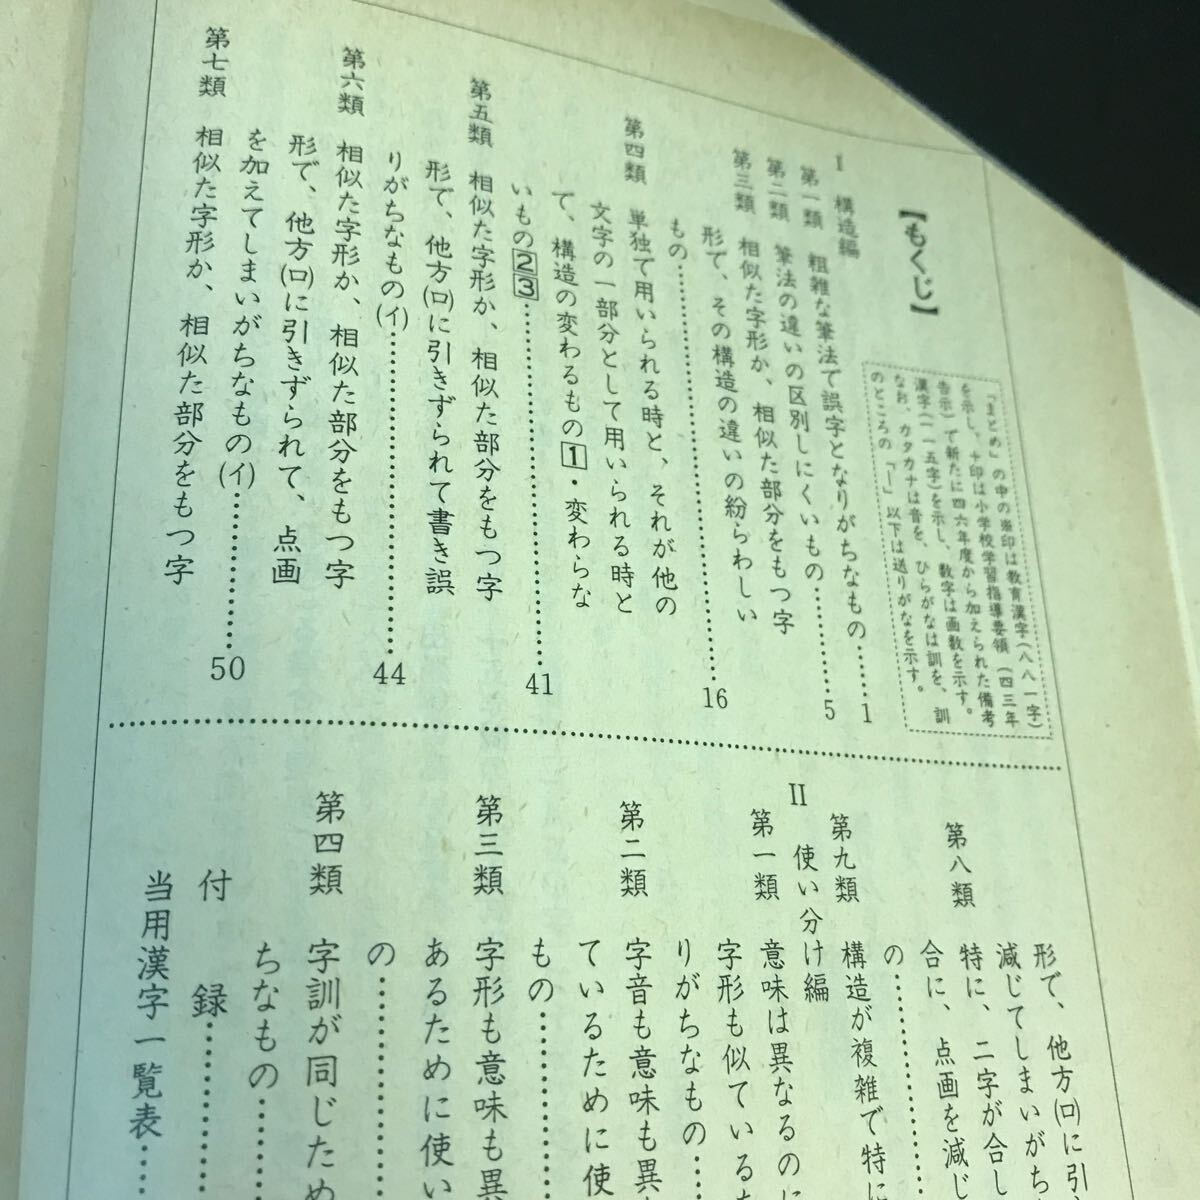 【もくじ】
「まとめ」の中の※印は教育漢字(八八一字)
を示し、十印は小学校学習指導要領(四三年
告示)で新たに四六年度から加えられた備考
漢字(一一五字)を示し、数字は画数を示す。
なお カタカナは音を、ひらがなは訓を、訓
のところの「ー」以下は送りがなを示す。
I 構造編
第一類 粗雑な筆法で誤字となりがちなもの……1
第二類 筆法の違いの区別しにくいもの………5
第三類 相似た字形か、相似た部分をもつ字
形で、その構造の違いの紛らわしい
もの……16
第四類 単独で用いられる時と、それが他の
文字の一部分として用いられる時と
て、構造の変わるもの1・変わらな
いもの23……41
第五類 相似た字形か、相似た部分をもつ字
形で、他方(ロ)に引きずられて書き誤
りがちなもの(イ)……44
第六類 相似た字形か、相似た部分をもつ字
形で、他方(ロ)に引きずられて、点画
を加えてしまいがちなもの(イ)……50
第七類 相似た字形か、相似た部分をもつ字
形で、他方(ロ)に引
減じてしまいがち
第八類 特に、二字が合し
合に、点画を減じ
の……
第九類 構造が複雑で特に
II 使い分け編
第一類 意味は異なるのに
字形も似ているた
りがちなもの……
第二類 字音も意味も異
ているために使
もの……
第三類 字形も意味も異
あるために使い
の……
第四類 字訓が同じため
ちなもの……
付 録……
当用漢字一覧表……